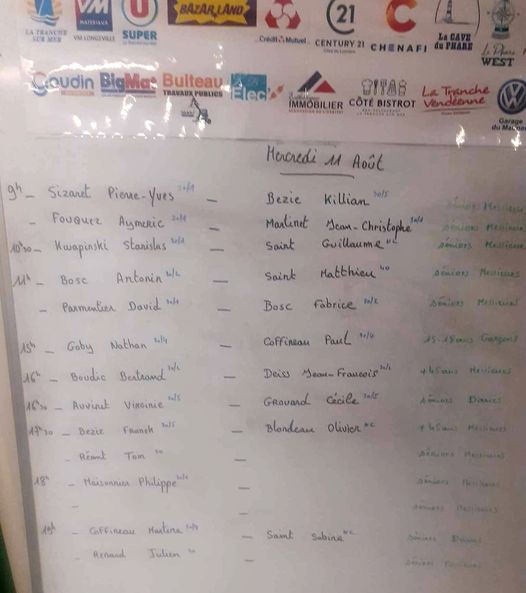 LA TRANCHE SUR MER
VM MATERIAUX
VM LONGEVILLE
U SUPER
BAZARLAND
Crédit Mutuel
21
CENTURY 21
CHENAFI
La CAVE du PHARE
Le Phare WEST
Goudin
BigMat
Bulteau
TRAVAUX PUBLICS
Élec
IMMOBILIER
CÔTÉ BISTROT
La Tranche Vendéenne
Garage du
Mercredi 11 Août
9h - Sizaret Pierre-Yves - Bezie Killian 30/5 séniors Messieurs
- Fouquez Aymeric - Martinet Jean-Christophe séniors Messieurs
10h30 - Kwapinski Stanislas - Saint Guillaume NC séniors Messieurs
11h - Bosc Antonin 30/2 - Saint Matthieu 40 séniors Messieurs
- Parmentier David - Bosc Fabrice 30/2 séniors Messieurs
15h - Goby Nathan 30/4 - Coffineau Paul 15-18 ans Garçons
16h - Boudic Bertrand - Deiss Jean-Francois +45 ans Messieurs
16h30 - Auvinet Virginie 30/5 - Gravard Cécile 30/5 séniors Dames
17h30 - Bezie Franck 30/5 - Blondeau Olivier NC +45 ans Messieurs
- Tom 30 - séniors Messieurs
18h - Maisonnier Philippe - séniors Messieurs
- - séniors Messieurs
19h - Coffineau Martine - Saint Sabine NC séniors Dames
- Renaud Julien 30 - séniors Messieurs